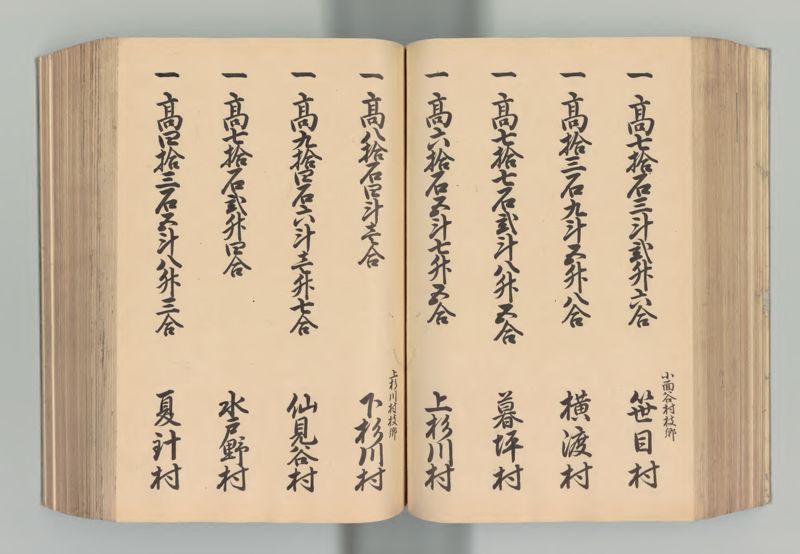 一高七拾石三斗弐升六合 小面谷村枝郷 笹目村
一高拾三石九斗五升八合 横渡村
一高七拾七石弐斗八升五合 暮坪村
一高六拾石五斗七升五合 上杉川村
一高八拾石四斗壱合 上杉川村枝郷 下杉川村
一高九拾四石六斗壱升七合 仙見谷村
一高七拾石弐升四合 水戸野村
一高四拾三石五斗八升三合 夏針村